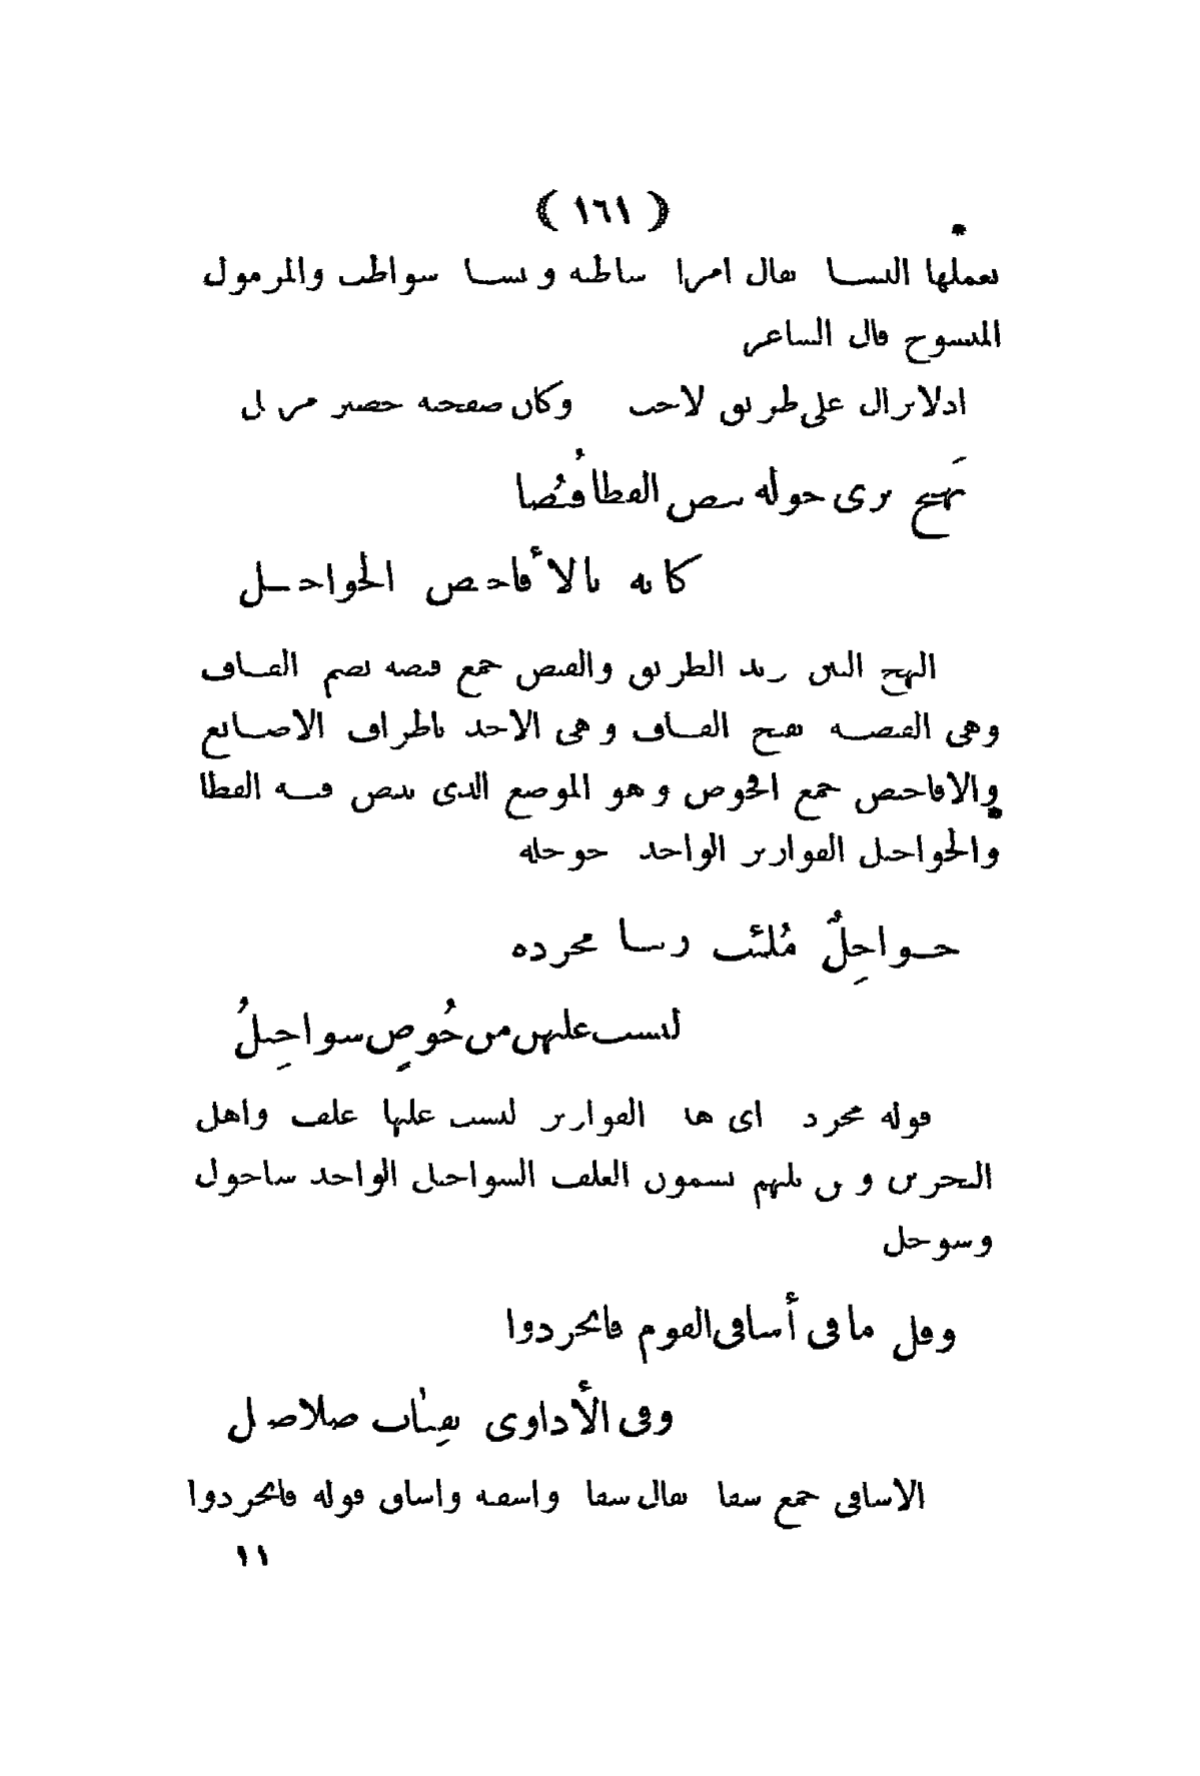 ( ١٦١ )
تعملها النسا يقال امرا شاطبه ونسا شواطب والمرمول
المنسوج قال الشاعر
اذ لا يزال على طريق لاحب وكان صفحته حصير مرمل
نَهج يرى حوله بيض القطا قُبُصا
كانه بالأفاحيص الحواجيل
النهج البين يريد الطريق والقبص جمع قبصه بضم القاف
وهى القبصه بفتح القاف وهى الاخذ باطراف الاصابع
والافاحيص جمع افحوص وهو الموضع الذى يبيض فيه القطا
والحواجل القوارير الواحد حوجله
حواجِلٌ مُلئت زيتا مجرده
ليست عليهن من خُوصٍ سواجِيلُ
قوله مجرد اى هذ القوارير ليست عليها غلف واهل
البحرين ومن يليهم يسمون الغلف السواجيل الواحد ساجول
وسوجل
وقل ما فى أساقى القوم فانجردوا
وفى الأداوى بقِيَّات صلاصل
الاساقى جمع سقا يقال سقا واسقيه واساق قوله فانجردوا
١١